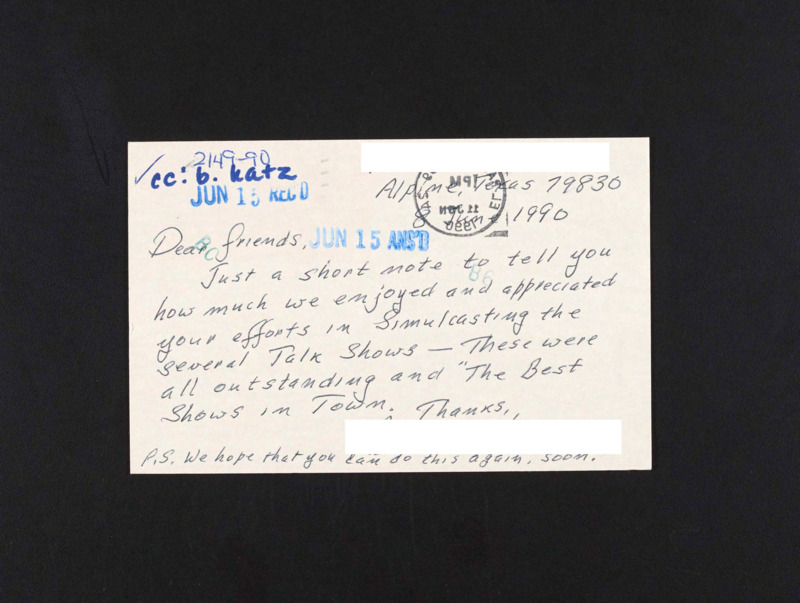 2149-90
✓cc: b. katz
JUN 15 REC'D
Alpine, Texas 79830
8 June 1990
Dear friends,
JUN 15 ANS'D
Just a short note to tell you
how much we enjoyed and appreciated
your efforts in Simulcasting the
several Talk Shows — These were
all outstanding and "The Best
Shows in Town. Thanks,
P.S. We hope that you can do this again, soon.